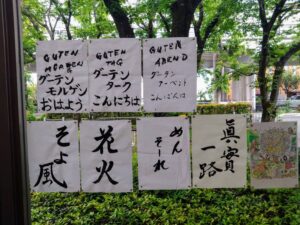 GUTEN
MORGEN
グーテン
モルゲン
おはよう
GUTEN
TAG
グーテン
ターク
こんにちは
GUTEN
ABEND
グーテン
アーベント
こんばんは
そよ
風
花
火
めん
そーれ
真實
一路